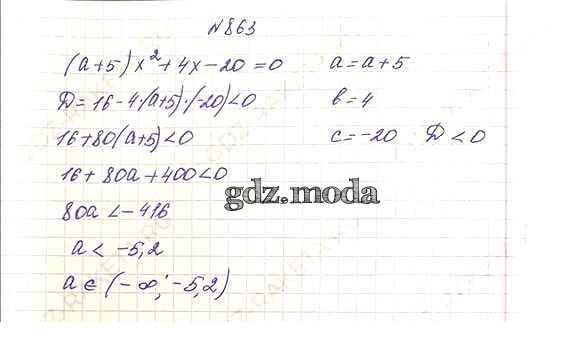 N863
(a+5)x²+4x-20=0 a=a+5
D=16-4·(a+5)·(-20)<0 b=4
16+80(a+5)<0 c=-20 D<0
16+80a+400<0
gdz.moda
80a<-416
a<-5,2
a∈(-∞;-5,2)